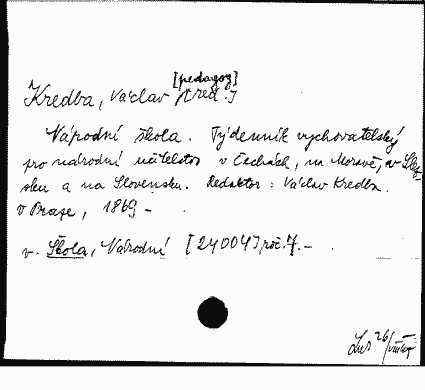 [pedagog]
Kredba, Václav [red.]
Národní škola. Týdenník vychovatelský
pro národní učitelstvo v Čechách, na Moravě, v Slez-
sku a na Slovensku. Redaktor: Václav Kredba.
v Praze, 1869 -
v. Škola, Národní [24004] roč. 7. -
26